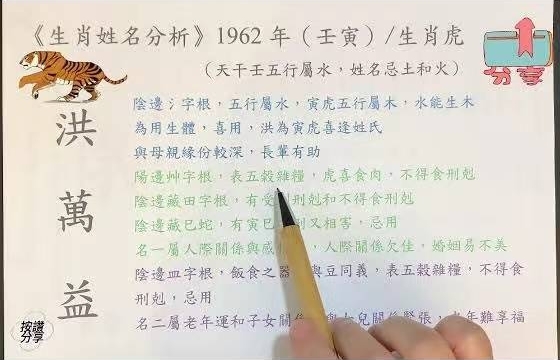 《生肖姓名分析》1962 年（壬寅）/生肖虎
（天干壬五行屬水，姓名忌土和火）
分享
洪
陰邊氵字根，五行屬水，寅虎五行屬木，水能生木
為用生體，喜用，洪為寅虎喜逢姓氏
與母親緣份較深，長輩有助
萬
陽邊艸字根，表五穀雜糧，虎喜食肉，不得食刑剋
陰邊藏田字根，有受 刑剋和不得食刑剋
陰邊藏巳蛇，有寅巳 刑又相害，忌用
名一屬人際關係與感 ，人際關係欠佳，婚姻易不美
益
陰邊皿字根，飯食之器 與豆同義，表五穀雜糧，不得食
刑剋，忌用
名二屬老年運和子女關係 與 兒關係緊張，老年難享福
按讚
分享